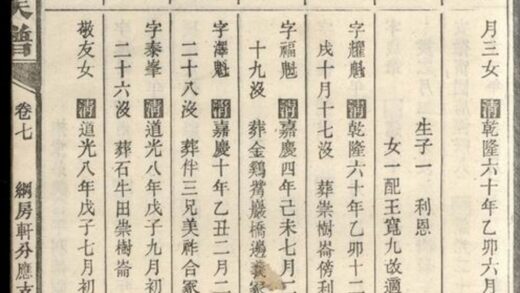 月三女 清乾隆六十年乙卯六月
生子一 利恩
女一配王寬九故適
字耀魁 清乾隆六十年十二
戌十月十七沒 葬崇樹崙傍利
字福魁 清嘉慶四年己未七月二
十九沒 葬金鷄巖橋邊義冢
字澤魁 清嘉慶十年乙丑二月二
二十八沒 葬伴三兄美祚合冢
字泰峯 清道光八年戊子九月初
二十六沒 葬石牛田崇樹崙
敬友女 清道光八年戊子七月初
族譜 卷七 綱房軒分應支